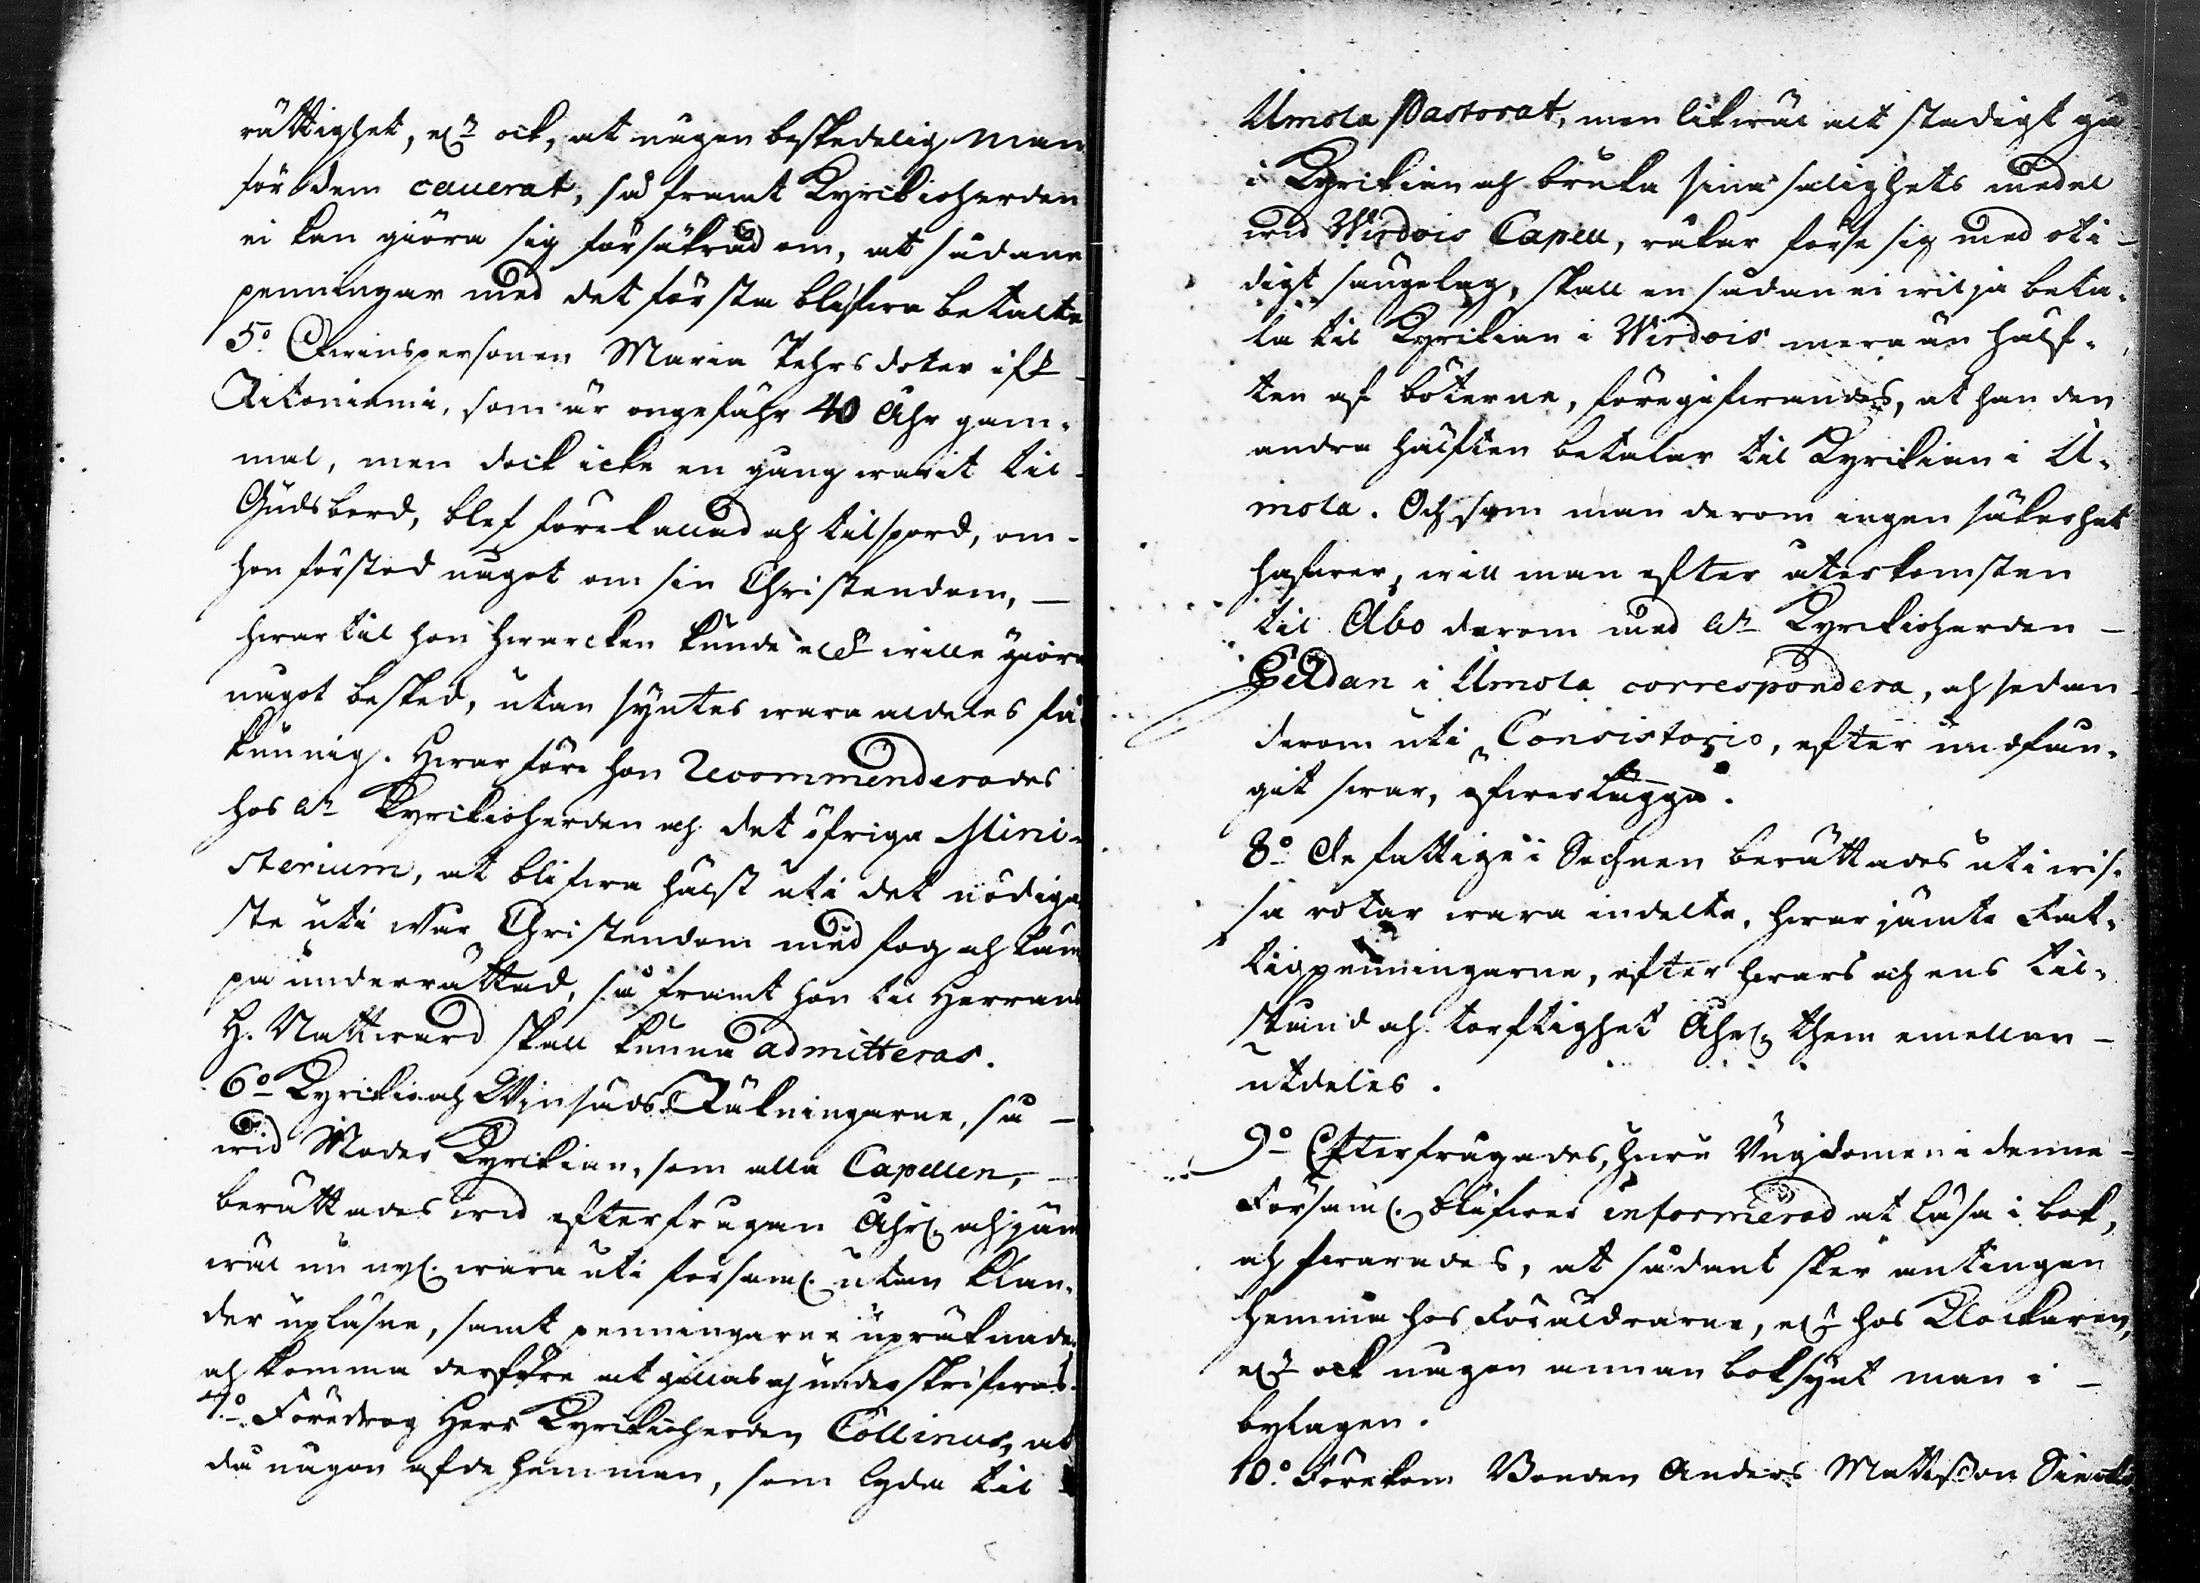 rättighet, elr ock, at någon beskedelig man
för dem caverat, så framt Kyrkioherden
ei kan giöra sig försäkrad om, at sådane
penningar med det första blifva betalte
5o Qvinspersonen Maria Pehrsdoter ifr
Aitoniemi, som är ongefähr 40 Åhr gam-
mal, men dock icke en gång warit til
Gudsbord, blef förekallad och tilspord, om
hon förstod något om sin Christendom, —
hwartil hon hwarcken kunde elr wille giöra
något besked, utan syntes wara aldeles få
kunnig. Hwarföre hon Recommenderades
hos hr Kyrkioherden och det öfriga Mini-
sterium, at blifwa hälst uti det nödiga
ste uti wår Christendom med fog och läm
pa underrättad, så framt hon til Herrans
H. Nattward skall kunna admitteras.
6o Kyrkio och Winsäds Räkningarne, så —
wid Moder Kyrkian, som alla Capellen, —
berättades wid efterfrågan Åhrl. och jäm
wäl nu nyl. wara uti församl. utan klan-
der upläsne, samt penningarne upräknade,
och komma derföre at gillas och underskrifwas.
7o Föredrog Herr Kyrkioherden Collinus, at
då någon af de hemman, som lyda til
Umola Pastorat, men likwäl alt stadigt gå
i Kyrkian och bruka sina salighets medel
wid Wirdois Capell, råkar förse sig med oti-
digt sängelag, skall en sådan ei wilja beta-
la til Kyrkian i Wirdois mera än hälf-
ten af böterne, föregifwandes, at han den
andra hälften betalar til Kyrkian i U-
mola. Och som man derom ingen säkerhet
hafwer, will man efter återkomsten
til Åbo derom med hr Kyrkioherden —
Geldan i Umola correspondera, och sedan
derom uti Consistorio, efter undfån-
git swar, öfwerlägga.
8o De fattige i Sochnen berättades uti wis-
sa rotar wara indelte, hwarjämte Fat-
tigpenningarne, efter hwars och ens til-
stånd och torftighet Åhrl. them emellan —
utdeles.
9o Efterfrågades, huru Ungdomen i denne
Församl. blifwer informerad at läsa i bok,
och swarades, at sådant sker antingen
hemma hos Föräldrarne, elr hos Klockaren,
elr ock någon annan boksynt man i —
bylagen.
10o Förekom Bonden Anders Mattsson